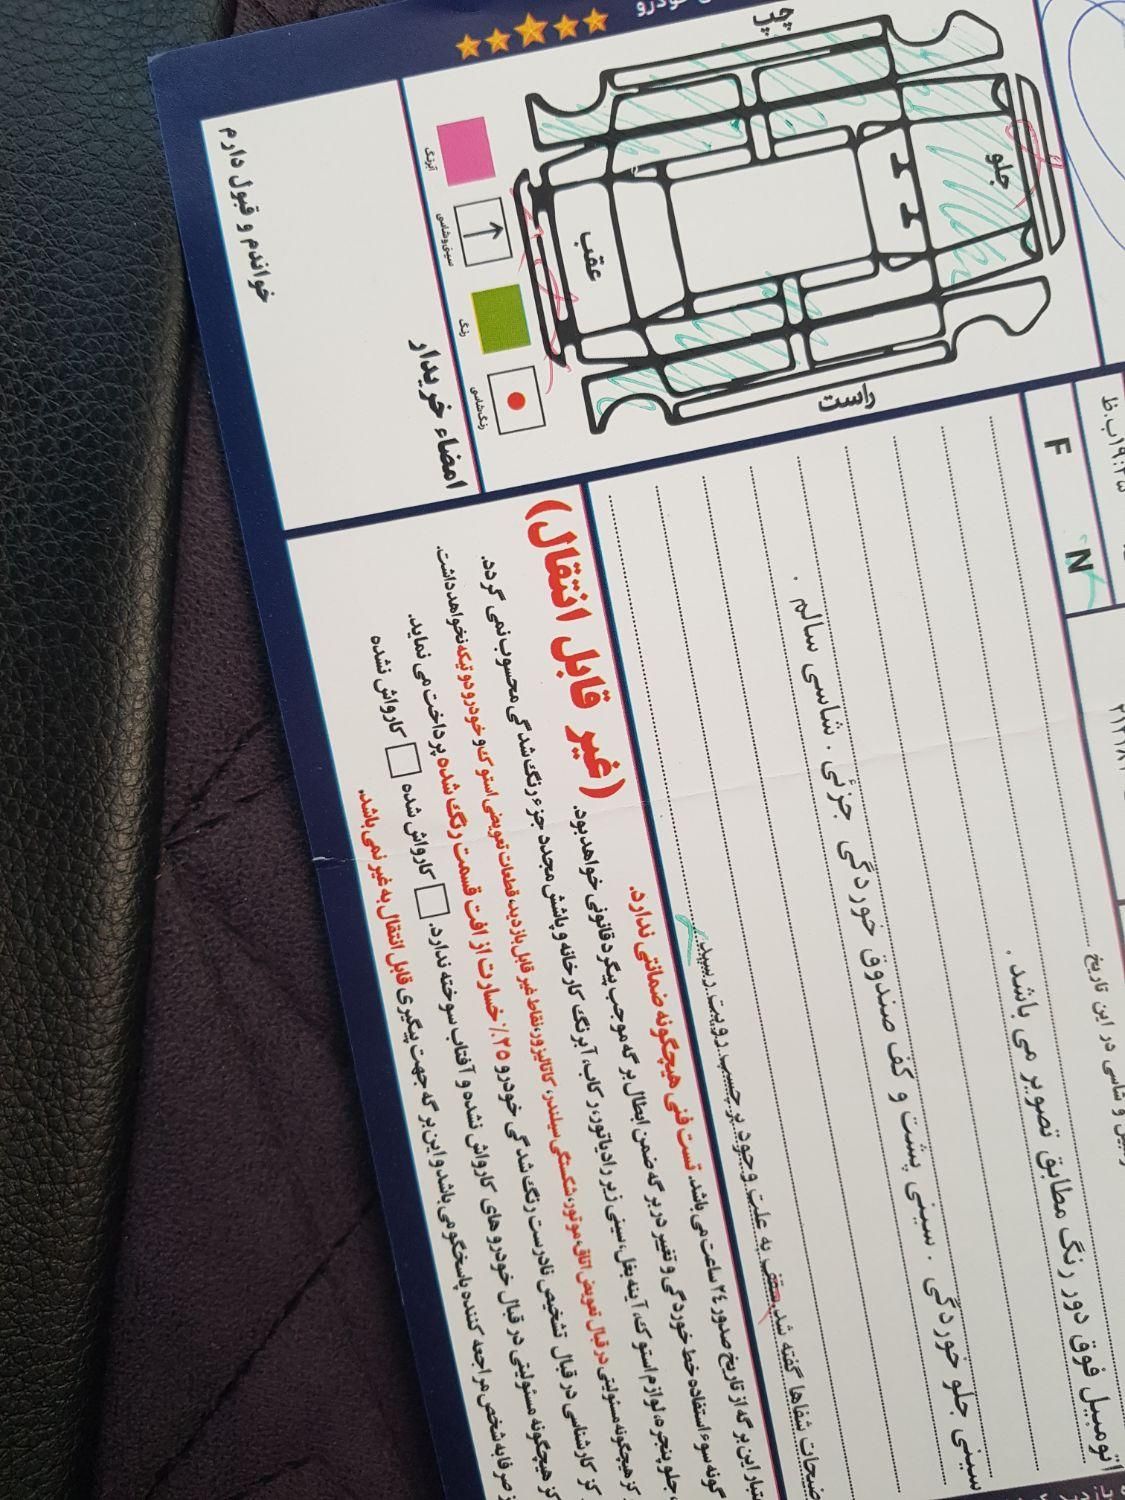 چپ
جلو
عقب
راست
آبرنگ
سینی و شاسی
رنگ
رنگ شاسی
امضاء خریدار
خواندم و قبول دارم
۱۹:۴۵ ب.ظ
F
N
و شاسی در این تاریخ
اتومبیل فوق دور رنگ مطابق تصویر می باشد .
سینی جلو خوردگی . سینی پشت و کف صندوق خوردگی جزئی . شاسی سالم .
گفته شد. سقف به علت وجود برچسب رویت
(غیر قابل انتقال)
این برگه از تاریخ صدور ۲۴ ساعت می باشد. تست فنی هیچگونه ضمانتی ندارد.
گونه سوء استفاده خط خوردگی و تغییر در برگه ضمن ابطال برگه موجب پیگرد قانونی خواهد بود.
جلو پنجره، لوازم استوک، آینه بغل، سینی زیر رادیاتور، رکاب، آبرنگ کارخانه و پاشش مجدد جزء رنگ شدگی محسوب نمی گردد.
هیچگونه مسئولیتی در قبال تعویض اتاق، موتور، شکستگی سیلندر، کاتالیزور، نقاط غیر قابل بازدید، قطعات تعویضی استوک و خودرو دو تیکه نخواهد داشت.
کارشناسی در قبال تشخیص نادرست رنگ شدگی خودرو ۲۵٪ خسارت از افت قسمت رنگ شده پرداخت می نماید.
هیچگونه مسئولیتی در قبال خودرو های کارواش نشده و آفتاب سوخته ندارد. کارواش شده کارواش نشده
صرفا به شخص مراجعه کننده پاسخگو می باشد و این برگه جهت پیگیری قابل انتقال به غیر نمی باشد.